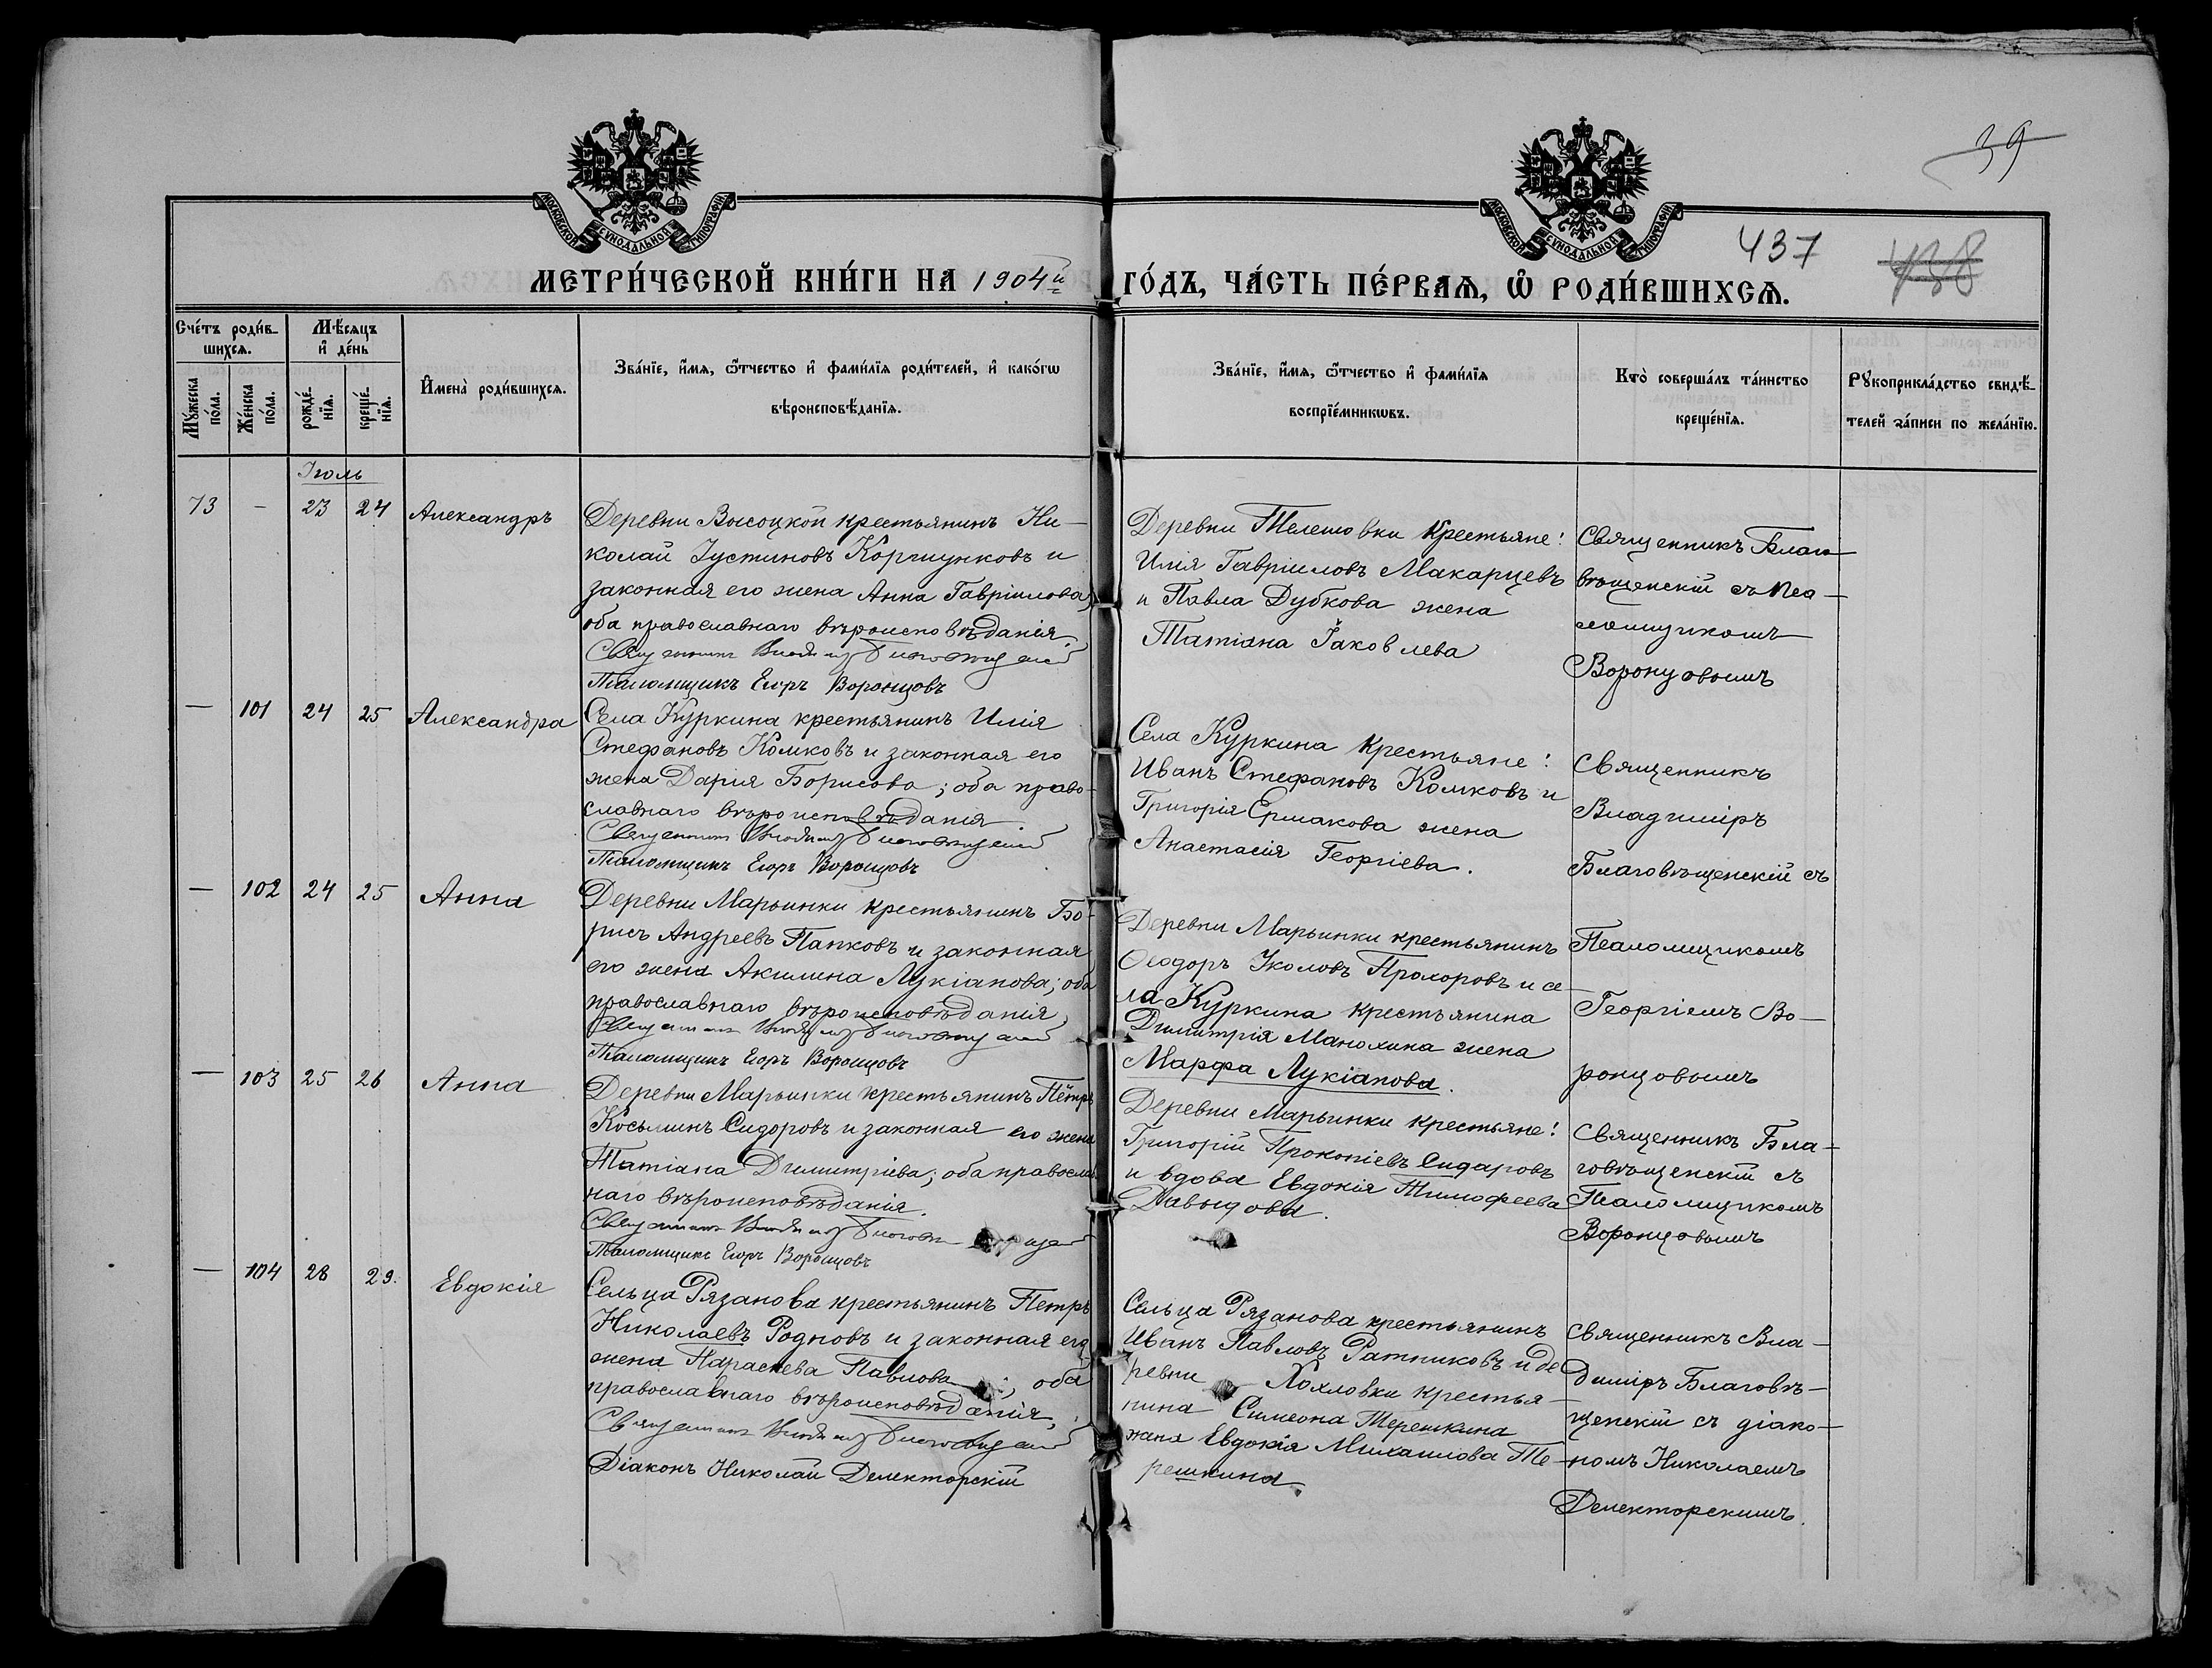 39
437
438
МОСКОВСКОЙ СѴНОДАЛЬНОЙ ТИПОГРАФІИ
МОСКОВСКОЙ СѴНОДАЛЬНОЙ ТИПОГРАФІИ
МЕТРИ́ЧЕСКОЙ КНИ́ГИ НА 1904й ГО́ДЪ, ЧА́СТЬ ПЕ́РВАѦ, Ѡ҆ РОДИ́ВШИХСѦ.
Сче́тъ роди́в-
шихсѧ.
Мѣ́сяцъ
и҆ де́нь
Мꙋ́жеска
по́ла.
Же́нска
по́ла.
рожде́-
нїѧ.
креще́-
нїѧ.
И҆мена̀ роди́вшихсѧ.
Зва́нїе, и҆́мѧ, ѻ҆́тчество и҆ фами́лїѧ роди́телей, и҆ како́гѡ
вѣроисповѣ́данїѧ.
Зва́нїе, и҆́мѧ, ѻ҆́тчество и҆ фами́лїѧ
воспрїе́мникѡвъ.
Кто̀ соверша́лъ та́инство
креще́нїѧ.
Рꙋкоприкла́дство свидѣ́-
телей за́писи по жела́нїю.
Іюль
73 - 23 24 Александръ
Деревни Высоцкой крестьянинъ Ни-
колай Іустиновъ Коршунковъ и
законная его жена Анна Гавріилова,
оба православнаго вѣроисповѣданія.
Священникъ Владиміръ Благовѣщенскій
Псаломщикъ Егоръ Воронцовъ
Деревни Телешовки крестьяне:
Илія Гавріиловъ Макарцевъ
и Павла Дубкова жена
Татіана Іаковлева
Священникъ Благо-
вѣщенскій съ пса-
ломщикомъ
Воронцовымъ
— 101 24 25 Александра
Села Куркина крестьянинъ Илія
Стефановъ Комковъ и законная его
жена Дарія Борисова; оба право-
славнаго вѣроисповѣданія
Священникъ Владиміръ Благовѣщенскій
Псаломщикъ Егоръ Воронцовъ
Села Куркина крестьяне:
Иванъ Стефановъ Комковъ и
Григорія Ермакова жена
Анастасія Георгіева.
Священникъ
Владиміръ
Благовѣщенскій съ
— 102 24 25 Анна
Деревни Марьинки крестьянинъ Бо-
рисъ Андреевъ Папковъ и законная
его жена Акилина Лукіанова; оба
православнаго вѣроисповѣданія
Священникъ Владиміръ Благовѣщенскій
Псаломщикъ Егоръ Воронцовъ
Деревни Марьинки крестьянинъ
Ѳеодоръ Прохоровъ и се-
ла Куркина крестьянина
Димитрія Манохина жена
Марфа Лукіанова.
Псаломщикомъ
Георгіемъ Во-
ронцовымъ
— 103 25 26 Анна
Деревни Марьинки крестьянинъ Петръ
Косьминъ Сидоровъ и законная его жена
Татіана Димитріева; оба православ-
наго вѣроисповѣданія.
Священникъ Владиміръ Благовѣщенскій
Псаломщикъ Егоръ Воронцовъ
Деревни Марьинки крестьяне:
Григорій Прокопіевъ Сидаровъ
и вдова Евдокія Тимофеева
Давыдова.
Священникъ Бла-
говѣщенскій съ
Псаломщикомъ
Воронцовымъ
— 104 28 29. Евдокія
Сельца Рязанова крестьянинъ Петръ
Николаевъ Родновъ и законная его
жена Параскева Павлова; оба
православнаго вѣроисповѣданія.
Священникъ Владиміръ Благовѣщенскій
Діаконъ Николай Делекторскій
Сельца Рязанова крестьянинъ
Иванъ Павловъ Ратниковъ и де-
ревни Хохловки крестья-
нина Симеона Терешкина
жена Евдокія Михаилова Те-
решкина.
Священникъ Вла-
диміръ Благовѣ-
щенскій съ діако-
номъ Николаемъ
Делекторскимъ.